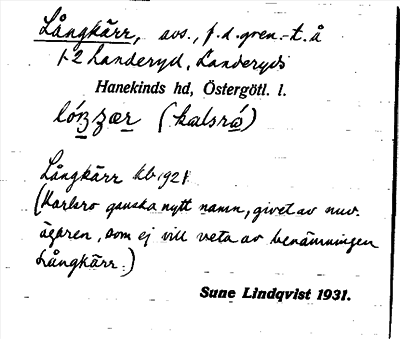 Långkärr, avs., f.d. gren.-t. å
1-2 Landeryd, Landeryds
Hanekinds hd, Östergötl. l.
(kalsró)
Långkärr kb 1921
(Karlsro ganska nytt namn, givet av nuv.
ägaren, som ej vill veta av benämningen
Långkärr.)
Sune Lindqvist 1931.